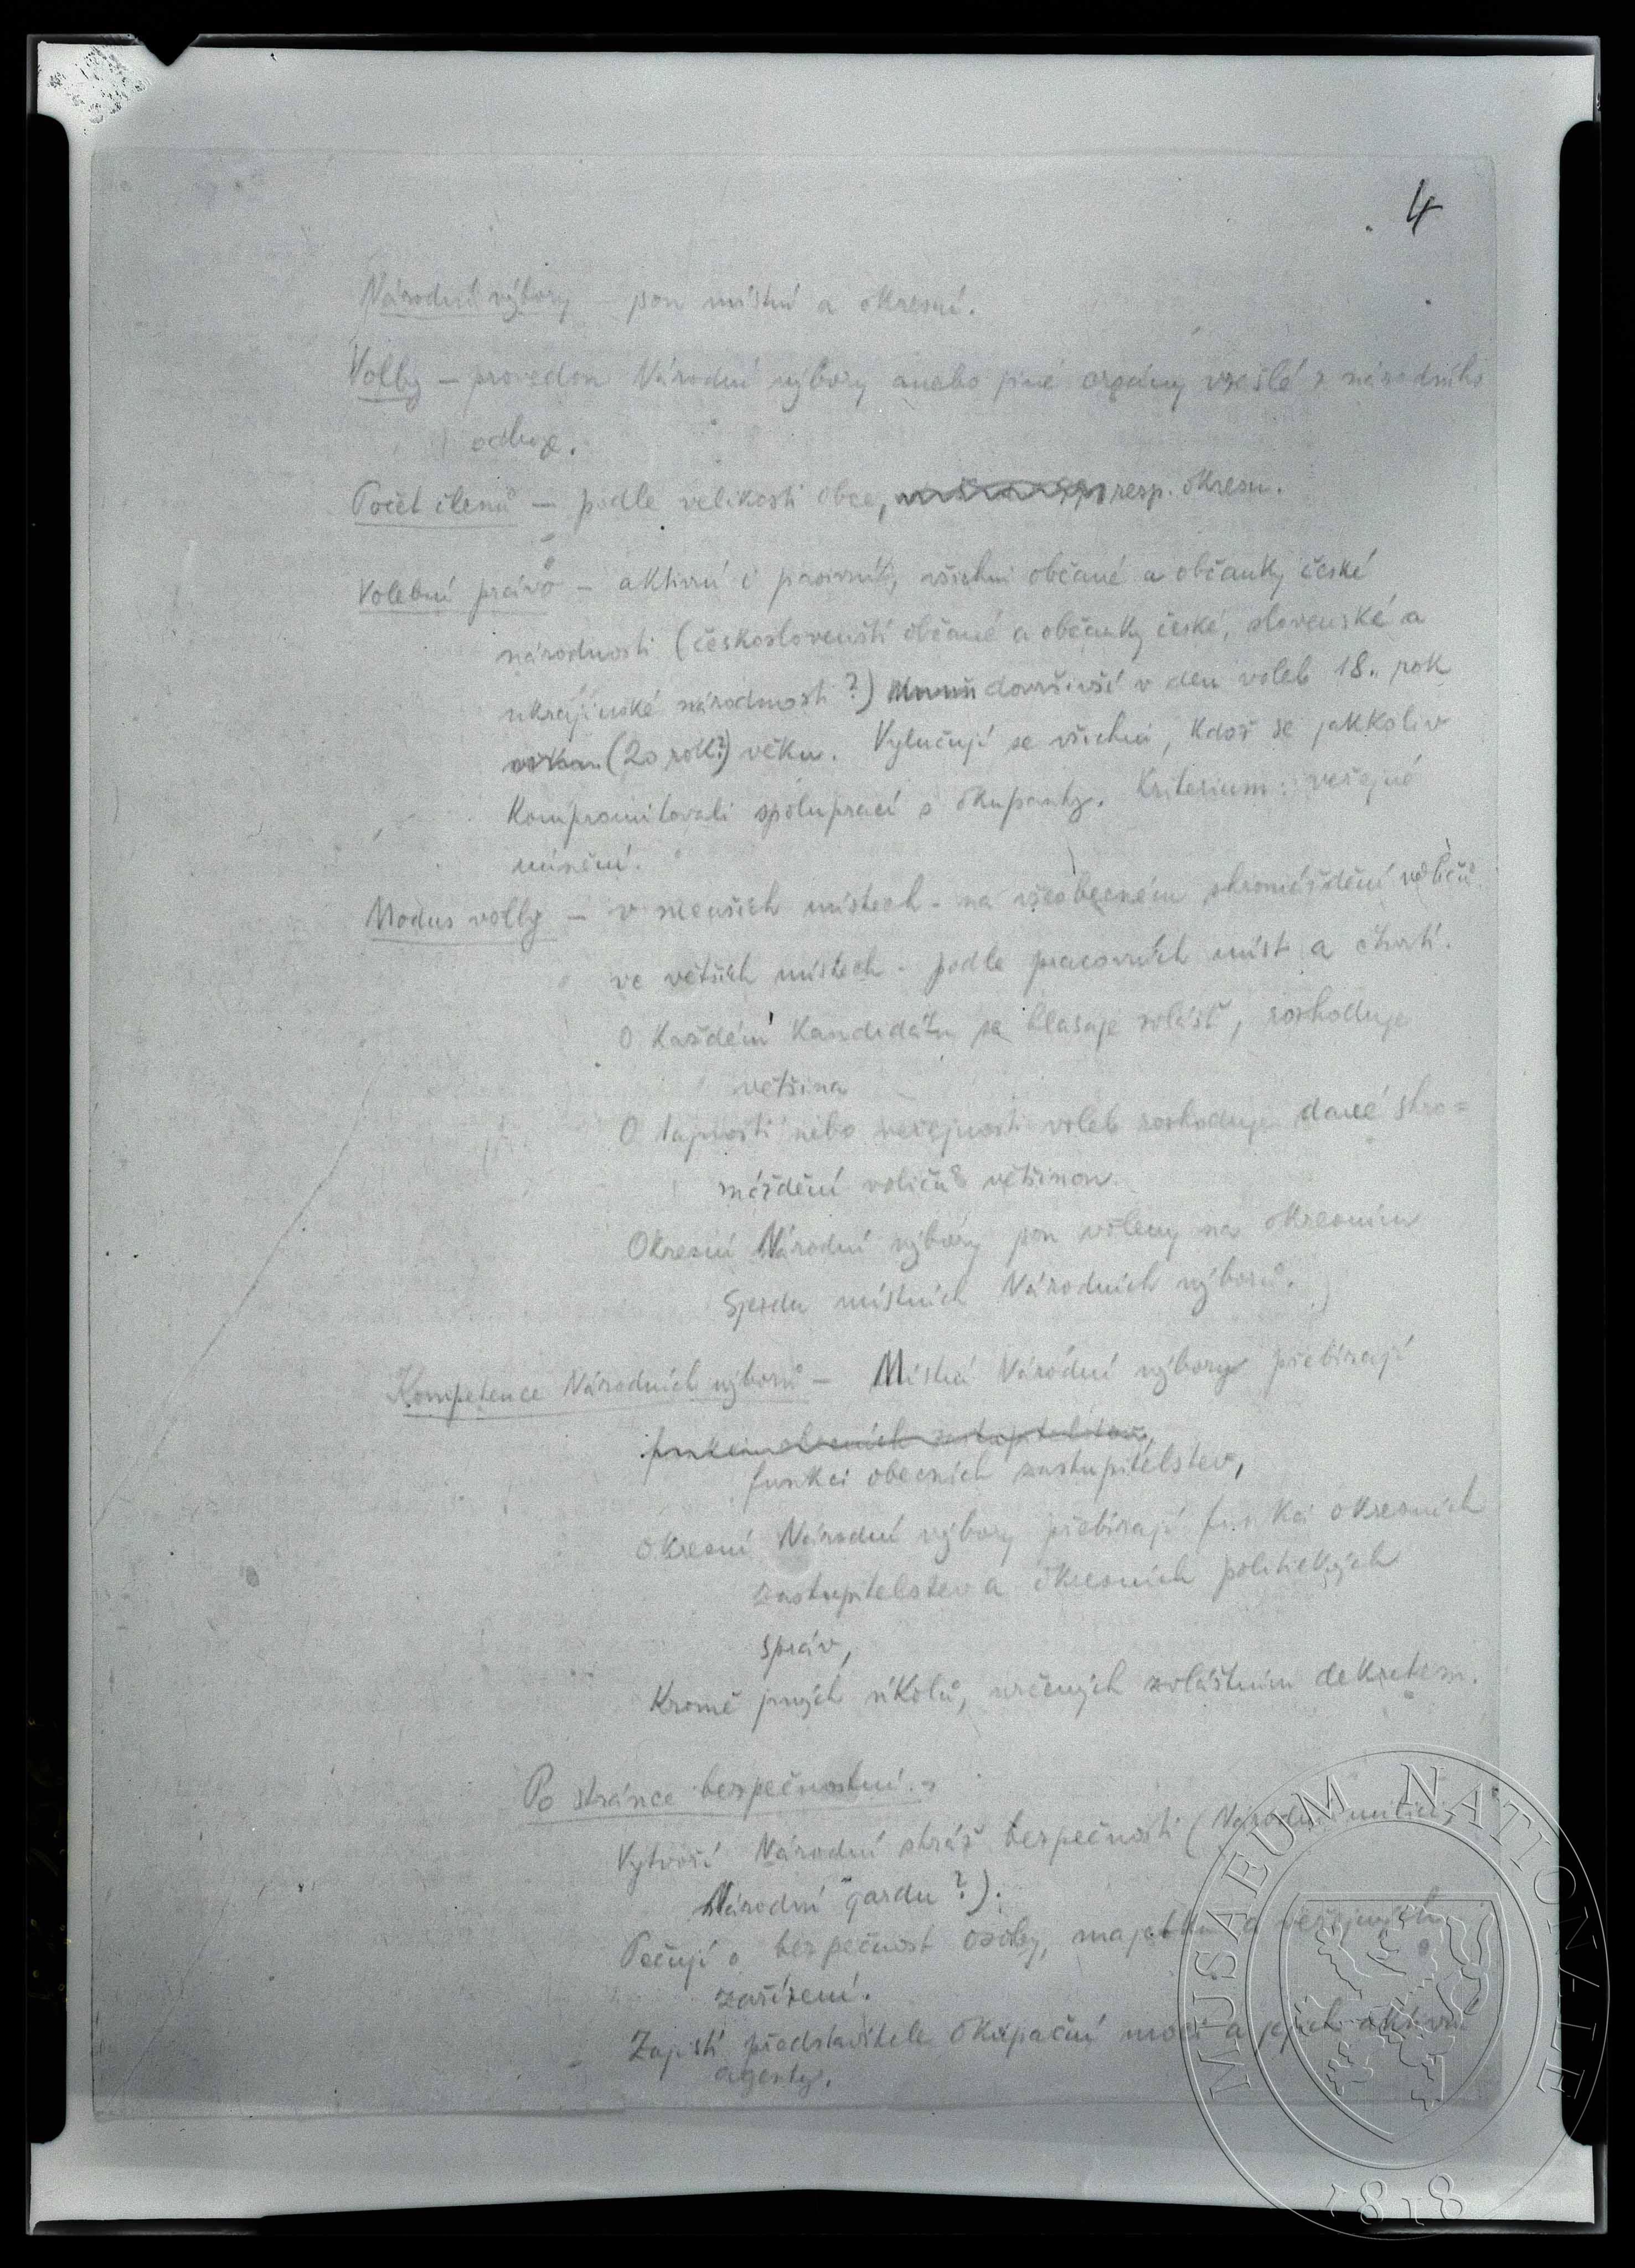 4
Národní výbory – jsou místní a okresní.
Volby – provedou Národní výbory anebo jiné orgány vzešlé z národního
odboje.
Počet členů – podle velikosti obce, resp. okresu.
Volební právo – aktivní i pasivní, všichni občané a občanky české
národnosti (českoslovenští občané a občanky české, slovenské a
ukrajinské národnosti?) dovršivší v den voleb 18. rok
(20 rok?) věku. Vylučují se všichni, kdož se jakkoliv
kompromitovali spoluprací s okupanty. Kriterium: veřejné
mínění.
Modus volby – v menších místech - na všeobecném shromáždění voličů
ve větších místech - podle pracovních míst a čtvrtí.
O každém kandidátu se hlasuje zvlášť, rozhoduje
většina
O tajnosti nebo veřejnosti voleb rozhoduje dané shro=
máždění voličů většinou.
Okresní Národní výbory jsou voleny na okresním
Sjezdu místních Národních výborů.
Kompetence Národních výborů – Místní Národní výbory přebírají
funkci obecních zastupitelstev
funkci obecních zastupitelstev,
Okresní Národní výbory přebírají funkci okresních
zastupitelstev a okresních politických
správ,
Kromě jiných úkolů, určených zvláštním dekretem.
Po stránce bezpečnostní:
Vytvoří Národní stráž bezpečnosti (Národní milici,
Národní gardu?).
Pečují o bezpečnost osoby, majetku a veřejných
zařízení.
Zajistí představitele okupační moci a jejich aktivní
agenty.
MUSAEUM NATIONALE
1818